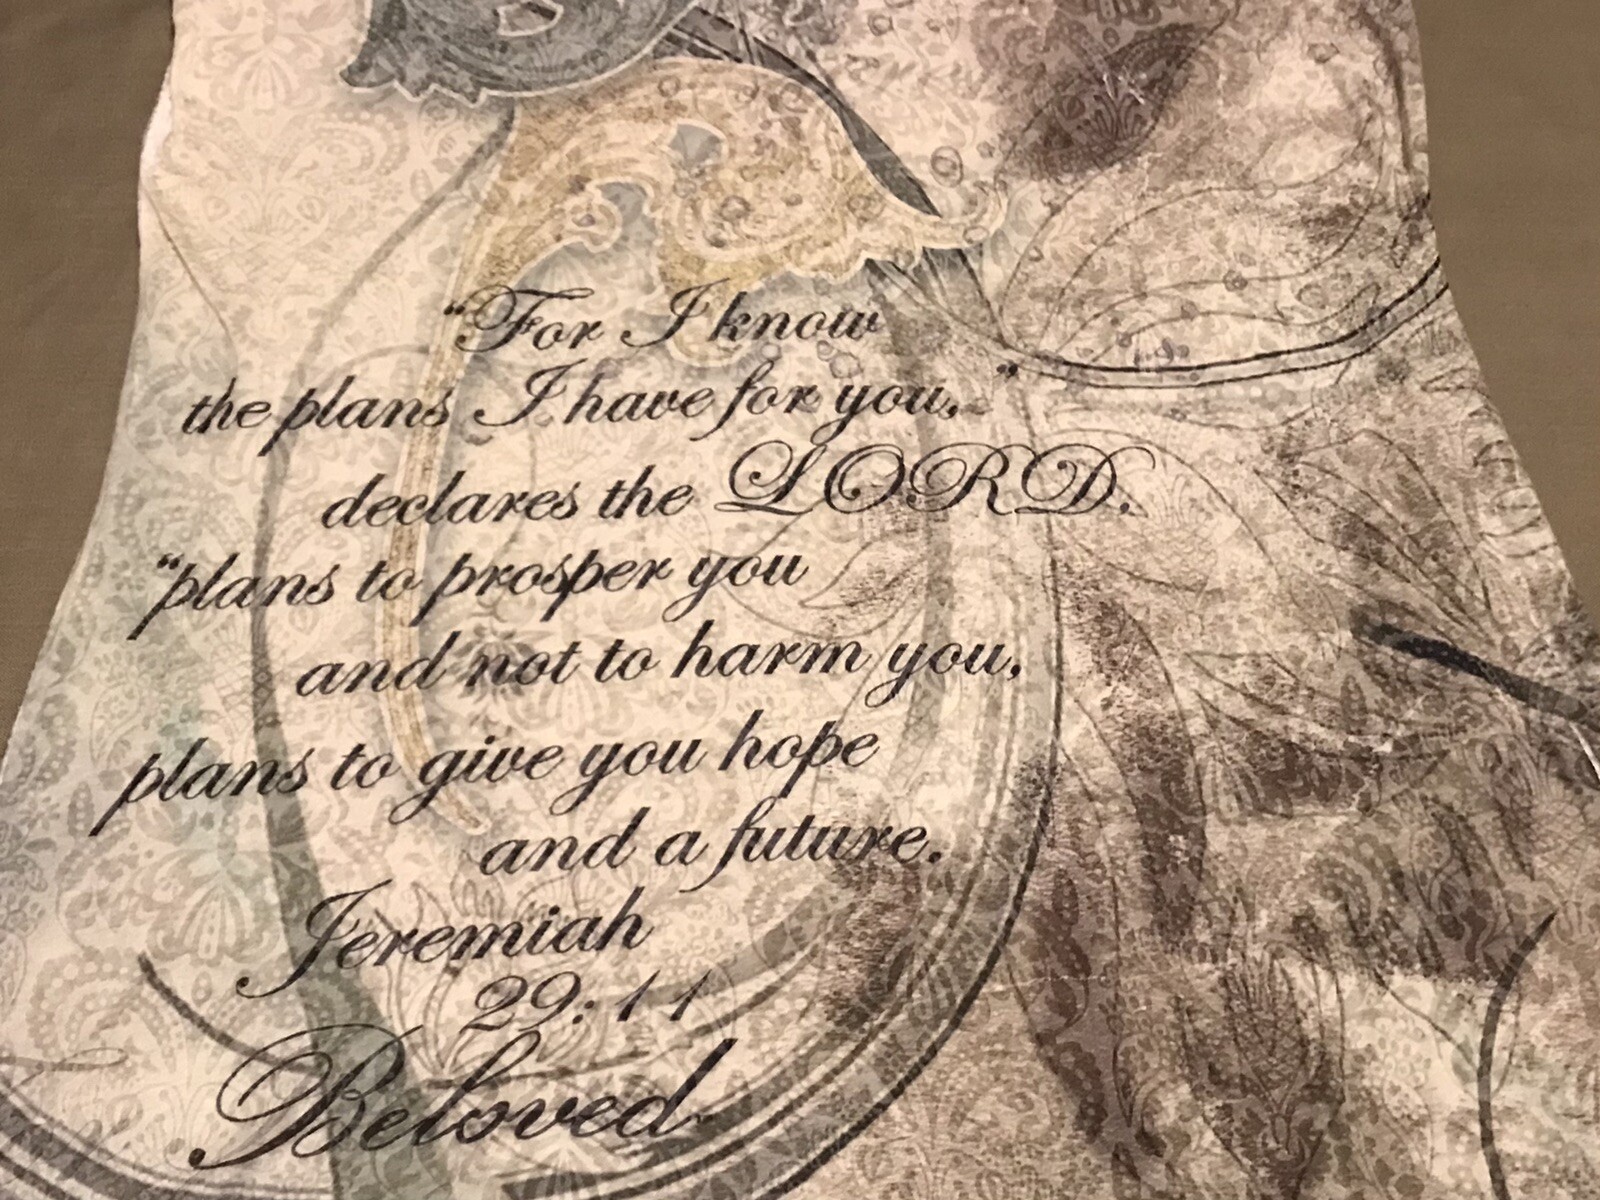 “For I know
the plans I have for you,”
declares the LORD,
“plans to prosper you
and not to harm you,
plans to give you hope
and a future.
Jeremiah
29:11
Beloved